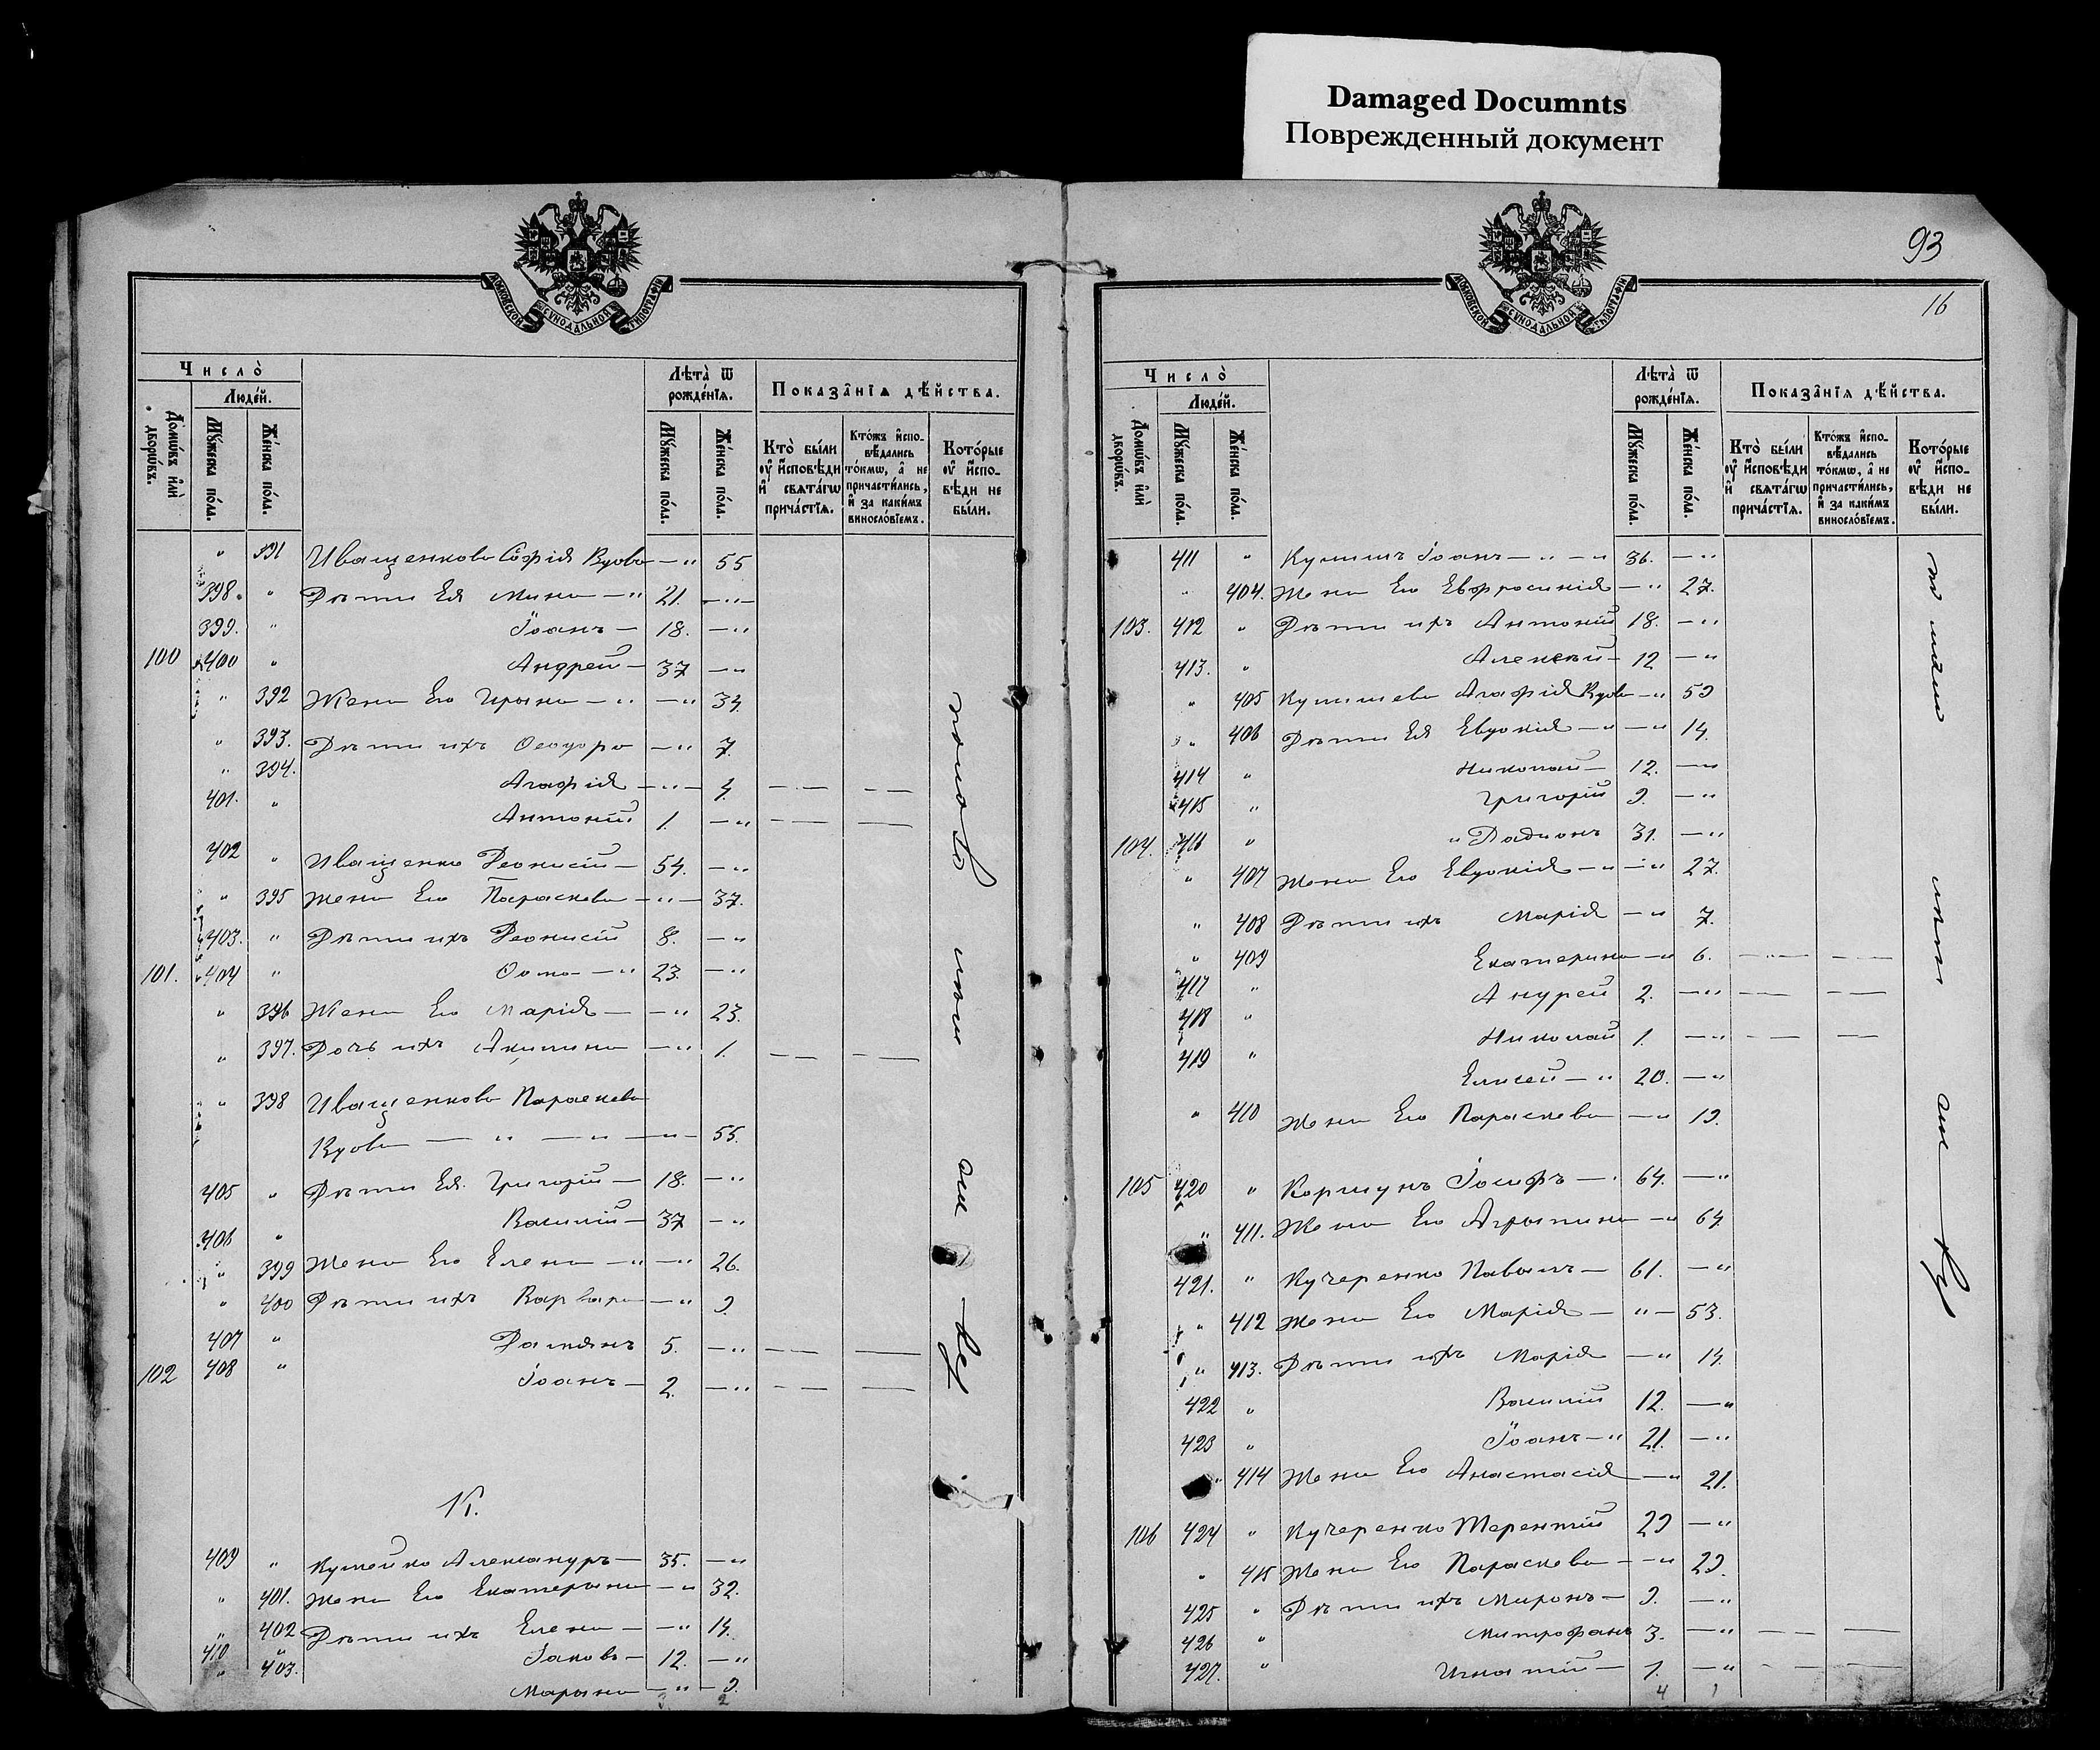 Damaged Documnts
Поврежденный документ
МОСКОВСКОЙ СѴНОДАЛЬНОЙ ТИПОГРАФІИ
Число̀
Люде́й.
Домѡ́въ и҆лѝ дворѡ́въ.
Мꙋ́жеска по́ла.
Же́нска по́ла.
Лѣта̀ ѿ рожде́нїѧ.
Мꙋ́жеска по́ла.
Же́нска по́ла.
Показа̑нїѧ дѣ́йства.
Кто̀ бы́ли ᲂу҆ и҆сповѣ́ди и҆ свѧта́гѡ прича́стїѧ.
Кто́жъ и҆спо-вѣ́дались то́кмѡ, а҆ не причасти́лись, и҆ за каки́мъ винословїемъ.
Кото́рые ᲂу҆ и҆спо-вѣ́ди не бы́ли.
" 391 Иващенкова Софія Вдова — " 55
398. " Дѣти Ея Мина — " 21. — " —
399. " Іоанъ — 18. — "
100 400 " Андрей — 37 — "
" 392 Жена Его Ирына — " — " 34.
" 393. Дѣти ихъ Ѳеодора — " 7.
" 394. Агафія — " — 4. — —
401. " Антоній 1. — " — —
402 " Иващенко Деонисій — 54. — "
" 395 Жена Его Параскева — " — 37.
403. " Дѣти ихъ Деонисій 8. — "
101. 404 " Ѳома — " 23. — "
" 396 Жена Его Марія — — " 23.
" 397. Дочь ихъ Акилина — " 1. — —
" 398 Иващенкова Параскева
Вдова — " — " — " — 55.
405 " Дѣти Ея Григорій — 18. — "
406 " Василій — 37 — "
" 399 Жена Его Елена — " — " 26.
" 400 Дѣти ихъ Варвара — " 9.
407 " Дамянъ 5. — " — —
102 408 " Іоанъ — 2. — " — —
К.
409 " Александръ — 35. — "
" 401. Жена Его Екатерына — " 32.
" 402 Дѣти ихъ Елена — — " 14.
410 " Іаковъ — 12. — "
" 403. Марына — " — 9.
2
93
16
Число̀
Люде́й.
Домѡ́въ и҆лѝ дворѡ́въ.
Мꙋ́жеска по́ла.
Же́нска по́ла.
Лѣта̀ ѿ рожде́нїѧ.
Мꙋ́жеска по́ла.
Же́нска по́ла.
Показа̑нїѧ дѣ́йства.
Кто̀ бы́ли ᲂу҆ и҆сповѣ́ди и҆ свѧта́гѡ прича́стїѧ.
Кто́жъ и҆спо-вѣ́дались то́кмѡ, а҆ не причасти́лись, и҆ за каки́мъ винословїемъ.
Кото́рые ᲂу҆ и҆спо-вѣ́ди не бы́ли.
411 " Іоанъ — " — " 36. — "
" 404. Жена Его Евфросинія — " 27.
103. 412 " Дѣти ихъ Антоній 18. — "
413. " Алексѣй — 12 — "
" 405 Агафія Вдова — " 59
" 406 Дѣти Ея Евдокія — " — " 14.
414 " Николай — 12. — "
415 " Григорій 9. — "
104. 416 " " Радионъ 31. — "
" 407 Жена Его Евдокія — " — " 27.
" 408 Дѣти ихъ Марія — " 7.
" 409 Екатерина — " 6. — —
417 " Андрей 2. — " — —
418 " Николай 1. — " — —
419 " Елисей — " 20. — "
" 410 Жена Его Параскева — " 19.
105 420 " Коршунъ Іосифъ — " 64. — "
" 411. Жена Его Агрыпина — " 64.
421. " Кучеренко Павелъ — 61. — "
" 412 Жена Его Марія — " — 53.
" 413. Дѣти ихъ Марія — " 14.
422 " Василій 12. — "
423 " Іоанъ — " 21. — "
" 414 Жена Его Анастасія — " 21.
106 424 " Кучеренко Терентій 29 — "
" 415 Жена Его Параскева — — " 29.
425 " Дѣти ихъ Миронъ — 9. — "
426 " Митрофанъ 3. — " — —
427. " Игнатій — 1. — " — —
4 1